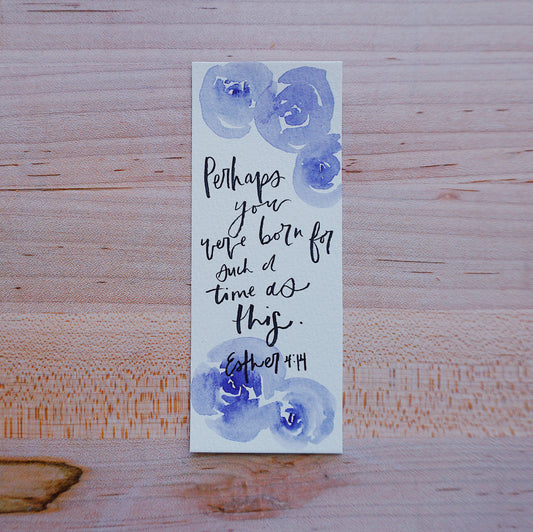 Perhaps
you
were born for
such a
time as
this.
Esther 4:14